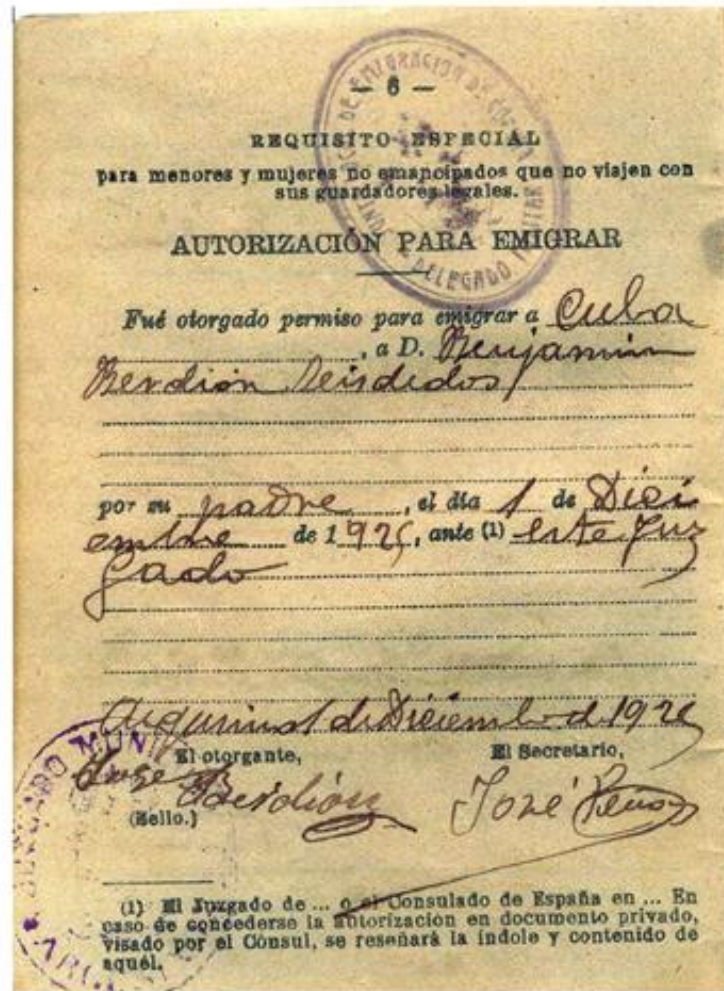 — 6 —
REQUISITO ESPECIAL
para menores y mujeres no emancipados que no viajen con
sus guardadores legales.
AUTORIZACIÓN PARA EMIGRAR
Fué otorgado permiso para emigrar a Cuba
, a D. Benjamin
Berdión Seisdedos
por su padre, el día 1 de Dici
embre de 192, ante (1) este Juz
gado
1 de Diciembre de 192
El otorgante, El Secretario,
Jose Berdión José
(Sello.)
(1) El Juzgado de ... o el Consulado de España en ... En
caso de concederse la autorización en documento privado,
visado por el Cónsul, se reseñará la índole y contenido de
aquél.